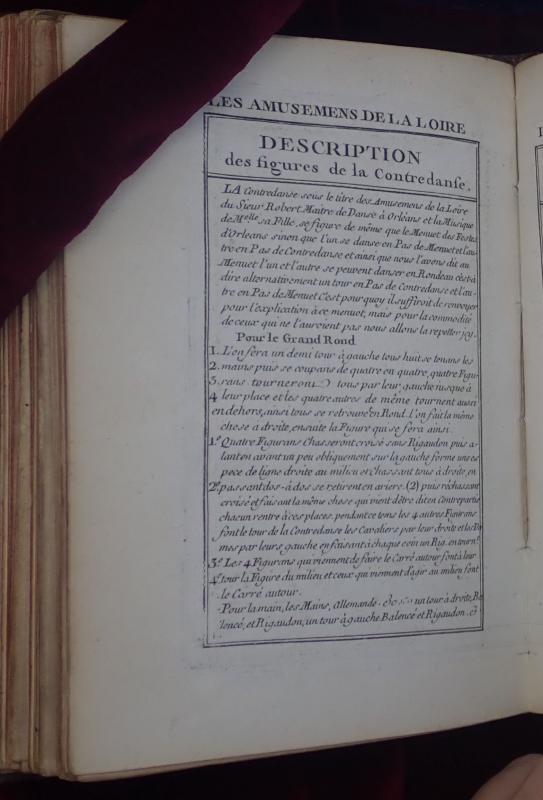 LES AMUSEMENS DE LA LOIRE
DESCRIPTION
des figures de la Contredanse.
LA Contredanse sous le titre des Amusemens de la Loire
du Sieur Robert Maitre de Danse à Orléans et la Musique
de Melle sa Fille, se figure de même que le Menuet des Festes
d'Orleans sinon que l'un se danse en Pas de Menuet et l'au-
tre en Pas de Contredanse et ainsi que nous l'avons dit au
Menuet l'un et l'autre se peuvent danser en Rondeau c'est à
dire alternativement un tour en Pas de Contredanse et l'au-
tre en Pas de Menuet C'est pourquoy il suffiroit de renvoyer
pour l'explication à ce menuet, mais pour la commodité
de ceux qui ne l'auroient pas nous allons la repetter jcy.
Pour le Grand Rond
1. L'on fera un demi tour à gauche tous huit se tenans les
2. mains puis se coupans de quatre en quatre, quatre Figu-
3. rans tourneront tous par leur gauche jusque à
4 leur place et les quatre autres de même tournent aussi
en dehors, ainsi tous se retrouvent en Rond. l'on fait la même
chose a droite, ensuite la Figure qui se fera ainsi.
1e Quatre Figurans Chasseront croisé sans Rigaudon puis a-
lant en avant un peu obliquement sur la gauche forme une es
pece de ligne droite au milieu et Chassant tous à droite, en
2e passant dos-à dos se retirent en ariere. (2) puis réchassant
croisé et faisant la même chose qui vient d'être dit en Contrepartie
chacun rentre à ces places. pendant ce tems les 4 autres Figurans
font le tour de la Contredanse les Cavaliers par leur droite et les Da
mes par leurs gauche en faisant à chaque coin un Rig. en tournt.
3e Les 4 Figurans qui viennent de faire le Carré autour font à leur
4e tour la Figure du milieu et ceux qui viennent d'agir au milieu font
le Carré autour.
Pour la main, les Mains, Allemande un tour à droite, Ba
lencé, et Rigaudon, un tour à gauche Balencé et Rigaudon.